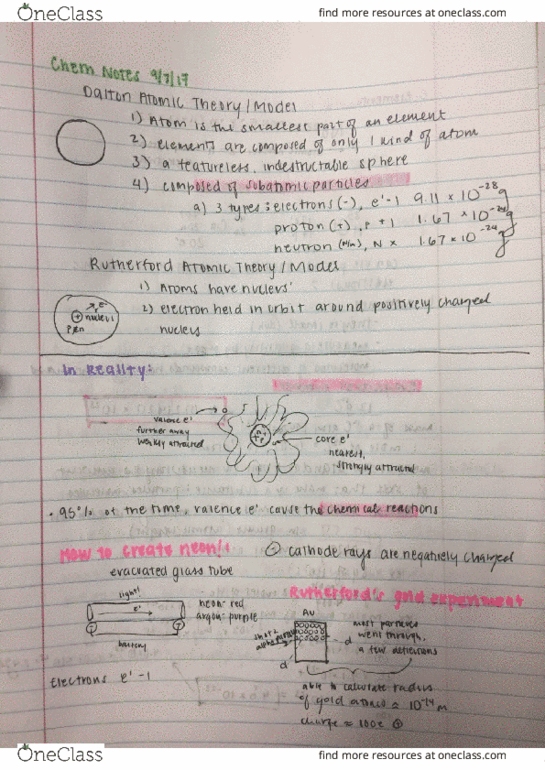 OneClass
find more resources at oneclass.com
Chem Notes 9/7/17
Dalton Atomic Theory/Model
1) Atom is the smallest part of an element
2) elements are composed of only 1 kind of atom
3) a featureless, indestructable sphere
4) composed of subatomic particles
a) 3 types: electrons (-), e⁻ -1 9.11 x 10⁻²⁸g
proton (+), +1 1.67 x 10⁻²⁴g
neutron, N 1.67 x 10⁻²⁴g
Rutherford Atomic Theory/Model
1) Atoms have nucleus
2) electron held in orbit around positively charged
nucleus
e⁻
+ nucleus
In Reality:
valence e⁻
further away
weakly attracted
core e⁻
nearest,
strongly attracted
• 95% of the time, valence e⁻ cause the chemical reactions
How to create neon!
⊖ cathode rays are negatively charged
evacuated glass tube
Rutherford's gold experiment
light!
e⁻
battery
neon: red
argon: purple
Au
alpha
d
d
most particles
went through,
a few deflections
Electrons e⁻ -1
able to calculate radius
of gold atom ≈ 10⁻¹⁴ m
charge ≈ 100e ⊕
OneClass
find more resources at oneclass.com